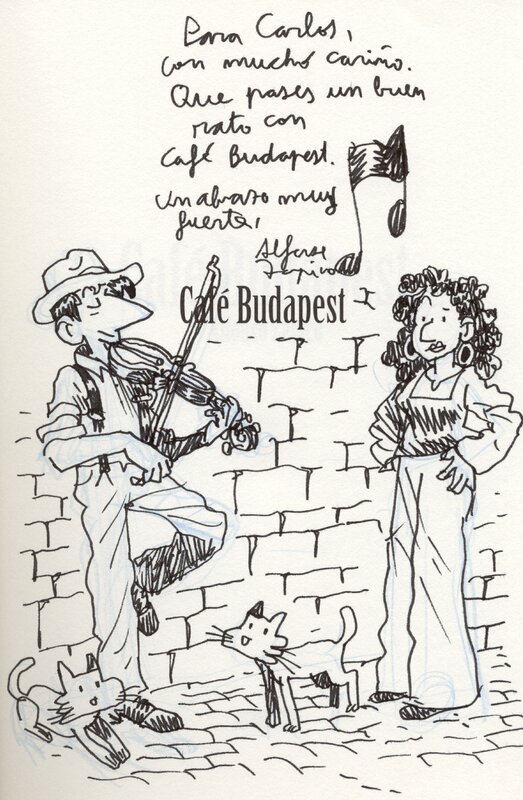 Para Carlos,
con mucho cariño.
Que pases un buen
rato con
Café Budapest.
Un abrazo muy
fuerte,
Alfonso
Zapico
Café Budapest